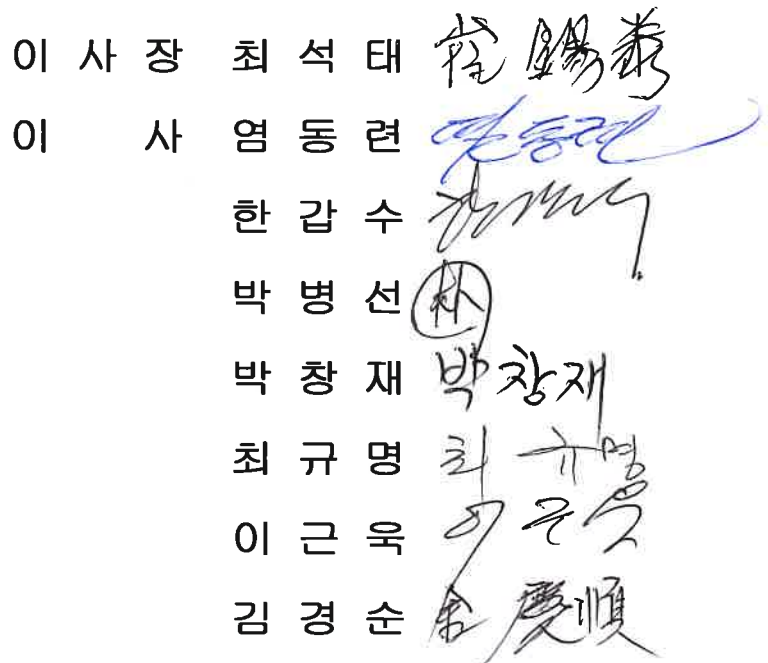 이 사 장 최 석 태 崔錫泰
이 사 염 동 련 염동련
한 갑 수
박 병 선 朴
박 창 재 박창재
최 규 명 최규명
이 근 욱 이근욱
김 경 순 金慶順